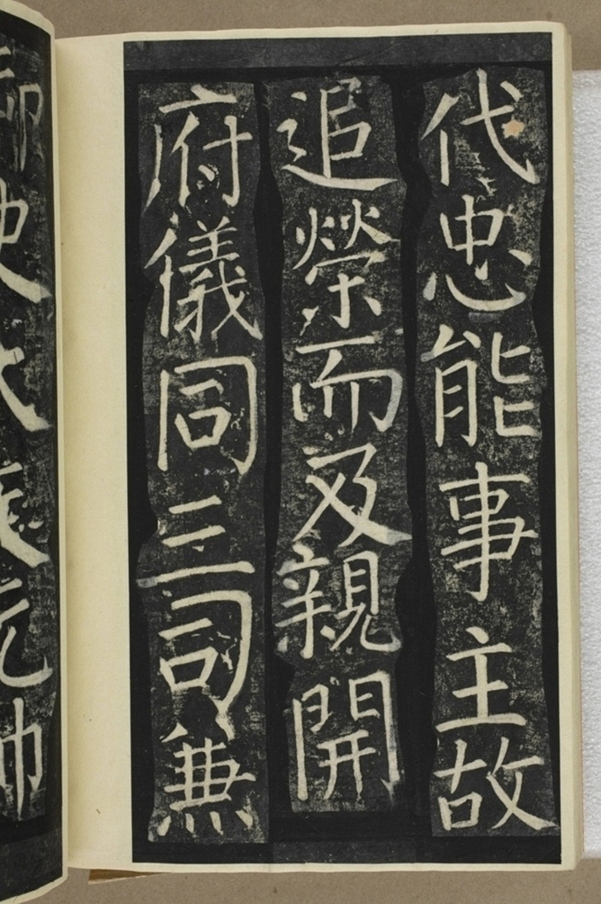 代忠能事主故
追榮而及親開
府儀同三司兼